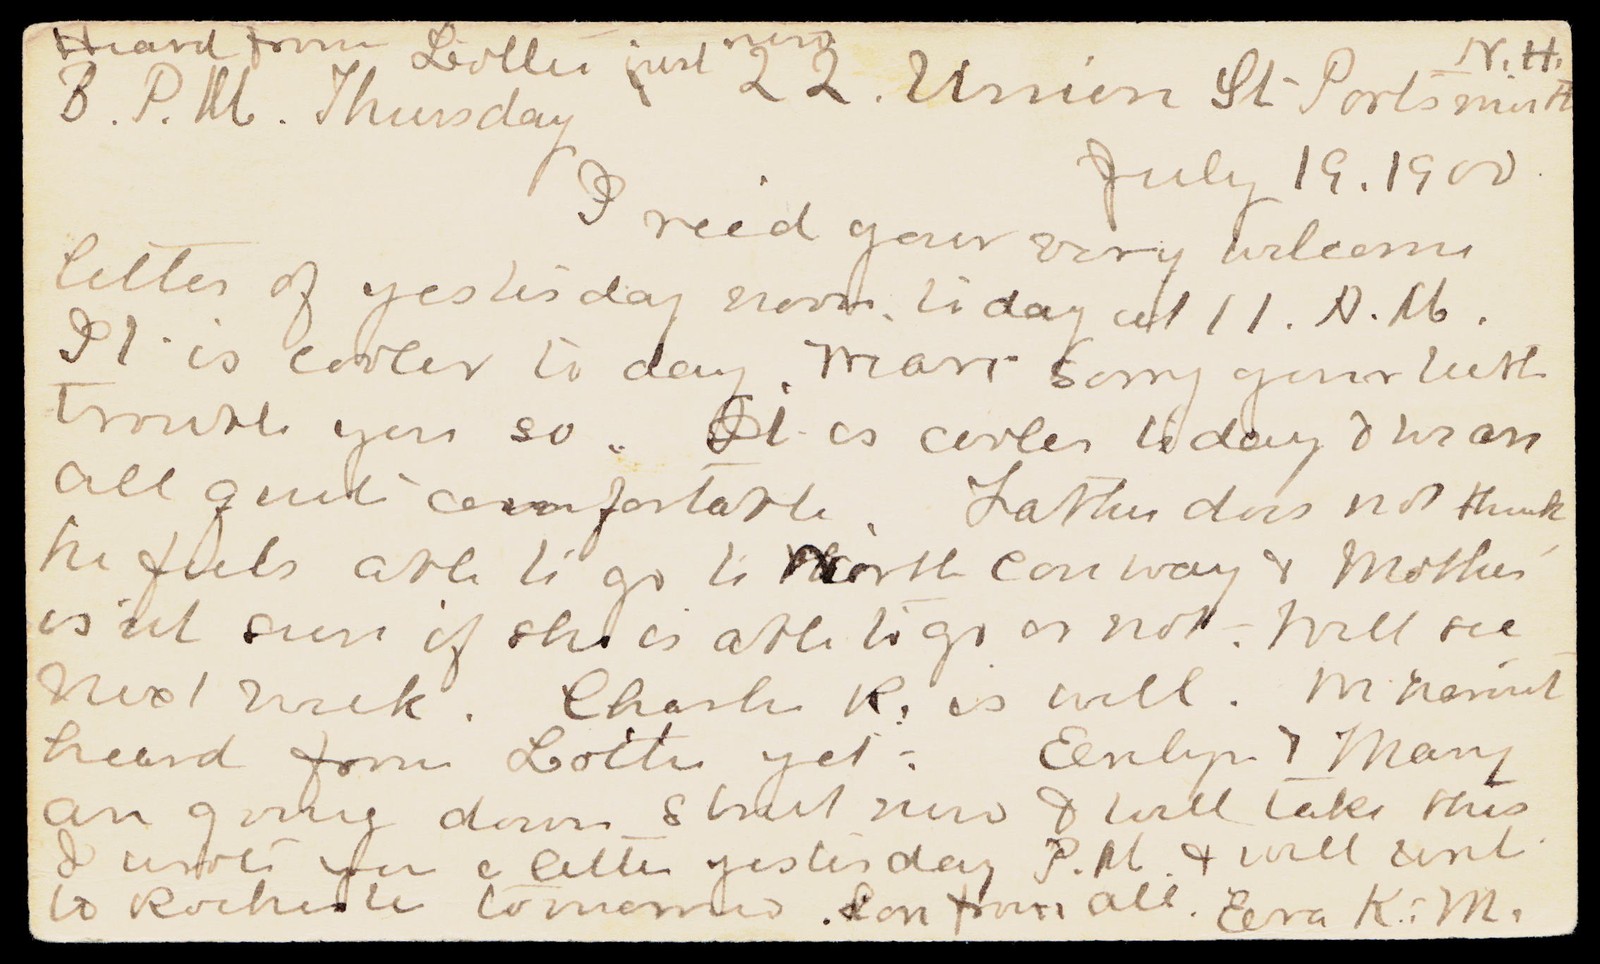 Heard from Lottie just now
22. Union St Portsmouth N.H.
3. P.M. Thursday
July 19. 1900.
I rec'd your very welcome
letter of yesterday noon, to day at 11. A.M.
It is cooler to day. Sorry your teeth
trouble you so. It is cooler to day & we are
all quite comfortable. Father does not think
he feels able to go to North Conway & Mother
is'nt sure if she is able to go or not. Will see
next week. Charlie K. is well. haven't
heard from Lottie yet. & Mary
are going down street now & will take this
I wrote you a letter yesterday P.M. & will write
to Rochester tomorrow. Love from all. K. M.